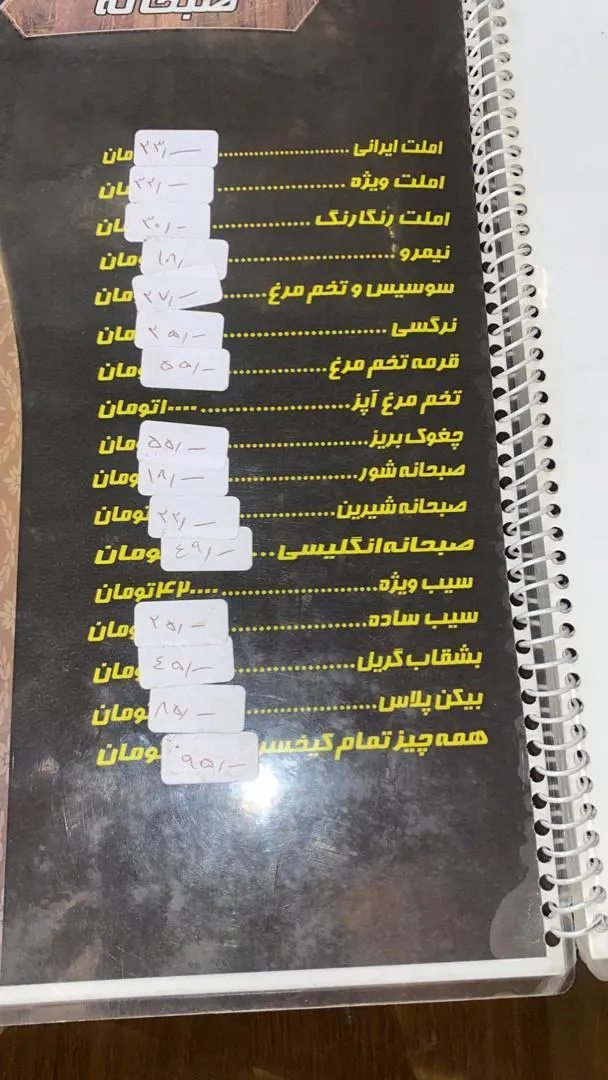 صبحانه
املت ایرانی ........................ ۲۳/— مان
املت ویژه ........................ ۳۲/— مان
املت رنگارنگ .................. ۳۰/— مان
نیمرو ........................ ۱۸/ ومان
سوسیس و تخم مرغ ....... ۲۷/— مان
نرگسی ........................ ۲۵/— مان
قرمه تخم مرغ .................. ۵۵/— مان
تخم مرغ آپز ........................ ۱۰۰۰۰تومان
چغوک بریز ........................ ۵۵/— مان
صبحانه شور ........................ ۱۸/— ومان
صبحانه شیرین .................. ۲۲/— تومان
صبحانه انگلیسی ... ۴۹/— ومان
سیب ویژه ........................ ۴۲۰۰۰تومان
سیب ساده ........................ ۲۵/— تومان
بشقاب گریل .................. ۴۵/— ومان
بیکن پلاس .................. ۸۵/— ومان
همه چیز تمام کیخسر ۹۵/— تومان